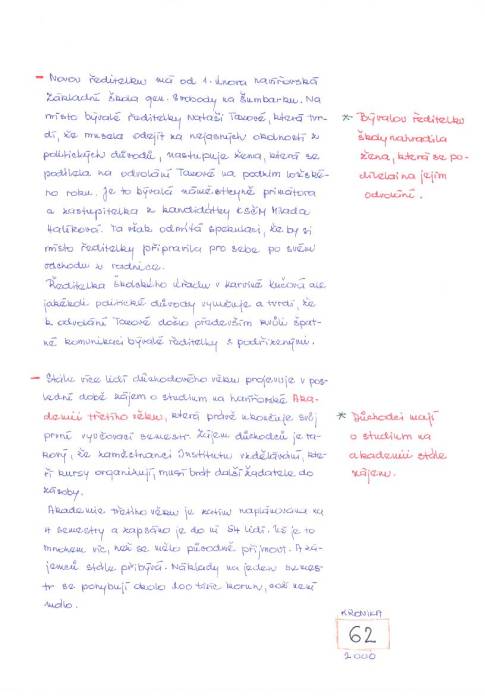 - Novou ředitelku má od 1. února havířovská
Základní škola gen. Svobody na Šumbarku. Na
místo bývalé ředitelky Nataši Taxové, která tvr-
dí, že musela odejít za nejasných okolností z
politických důvodů, nastupuje žena, která se
podílela na odvolání Taxové na podzim loňské-
ho roku. Je to bývalá náměstkyně primátora
a zastupitelka z kandidátky KSČM Mlada
Halíková. Ta však odmítá spekulaci, že by si
místo ředitelky připravila pro sebe po svém
odchodu z radnice.
Ředitelka Školského úřadu v Karviné Kučová ale
jakékoli politické důvody vylučuje a tvrdí, že
k odvolání Taxové došlo především kvůli špat-
né komunikaci bývalé ředitelky s podřízenými.
* Bývalou ředitelku
školy nahradila
žena, která se po-
dílela i na jejím
odvolání.
- Stále více lidí důchodového věku projevuje v pos-
lední době zájem o studium na havířovské Aka-
demii třetího věku, která právě ukončuje svůj
první vyučovací semestr. Zájem důchodců je ta-
kový, že zaměstnanci Institutu vzdělávání, kte-
ří kursy organizují, musí brát další žadatele do
zásoby.
Akademie třetího věku je zatím naplánována na
4 semestry a zapsáno je do ní 54 lidí. Už je to
mnohem víc, než se mělo původně přijmout. A zá-
jemců stále přibývá. Náklady na jeden semes-
tr se pohybují okolo 100 tisíc korun, což není
málo.
* Důchodci mají
o studium na
akademii stále
zájem.
KRONIKA
62
2000